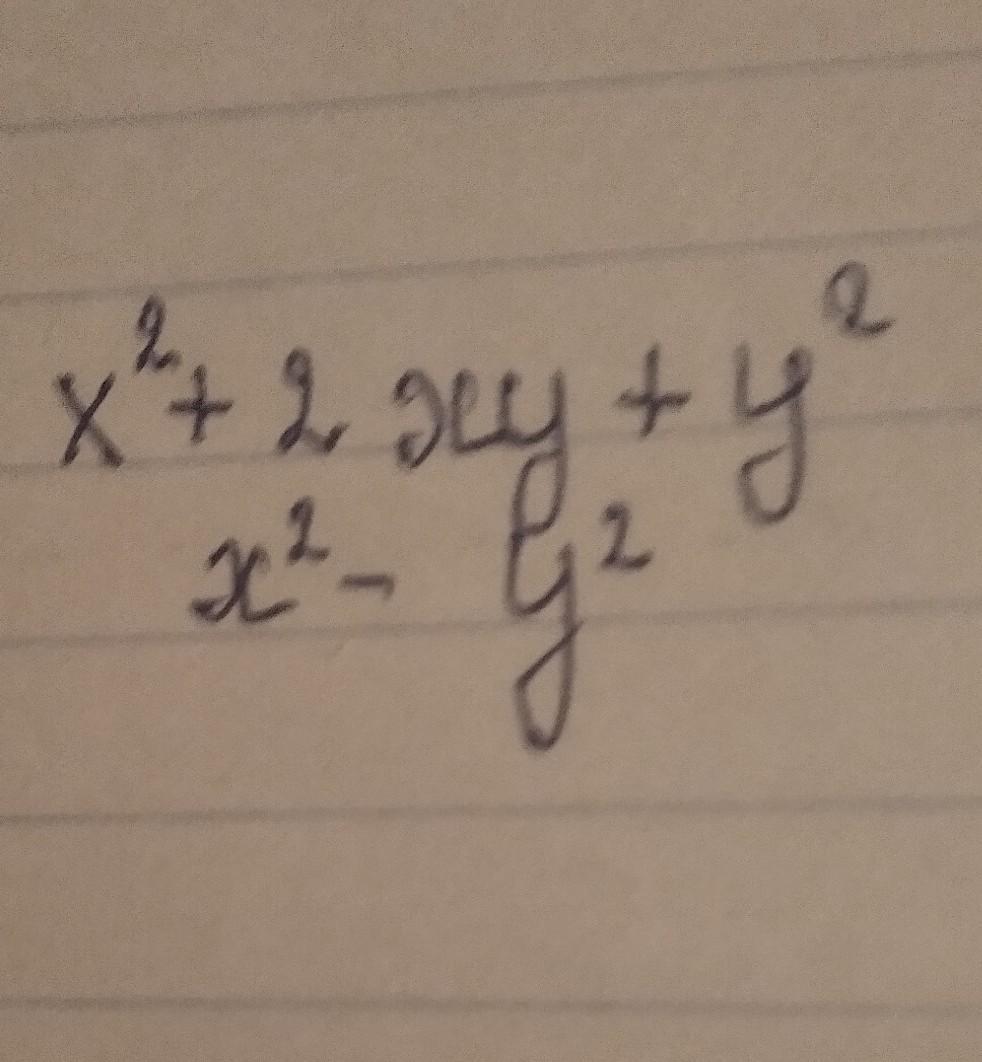 x² + 2xy + y²
x² - y²